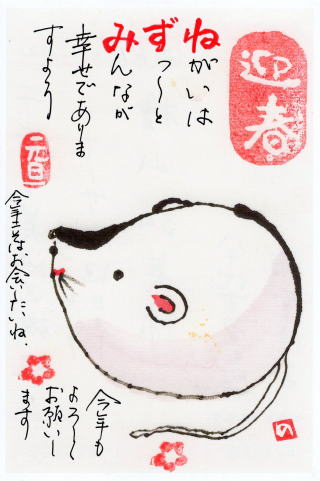 迎春
ねがいは
ずっ〜と
みんなが
幸せでありま
すように
元旦
今年こそはお会いしたいね。
今年も
よろしく
お願いし
ます
の